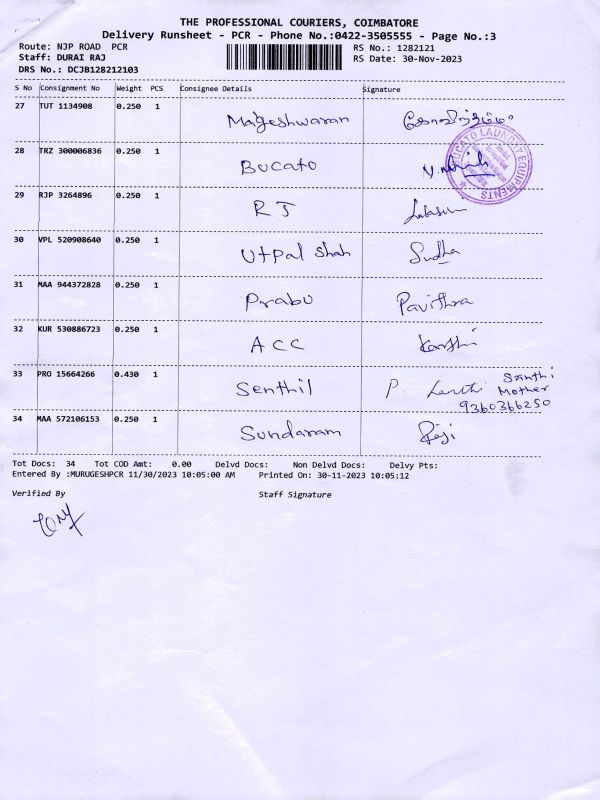 THE PROFESSIONAL COURIERS, COIMBATORE
Delivery Runsheet - PCR - Phone No.:0422-3505555 - Page No.:3
Route: NJP ROAD PCR RS No.: 1282121
Staff: DURAI RAJ RS Date: 30-Nov-2023
DRS No.: DCJB128212103
S No Consignment No Weight PCS Consignee Details Signature
27 TUT 1134908 0.250 1 Mageshwaran
28 TRZ 300006836 0.250 1 Bucato
BUCATO LAUNDRY EQUIPMENTS
29 RJP 3264896 0.250 1 RJ
30 VPL 520908640 0.250 1 Utpal Shah Sudha
31 MAA 944372828 0.250 1 Prabu Pavithra
32 KUR 530886723 0.250 1 ACC
33 PRO 15664266 0.430 1 Senthil P. Santhi
Mother
9360366250
34 MAA 572106153 0.250 1 Sundaram
Tot Docs: 34 Tot COD Amt: 0.00 Delvd Docs: Non Delvd Docs: Delvy Pts:
Entered By :MURUGESHPCR 11/30/2023 10:05:00 AM Printed On: 30-11-2023 10:05:12
Verified By Staff Signature